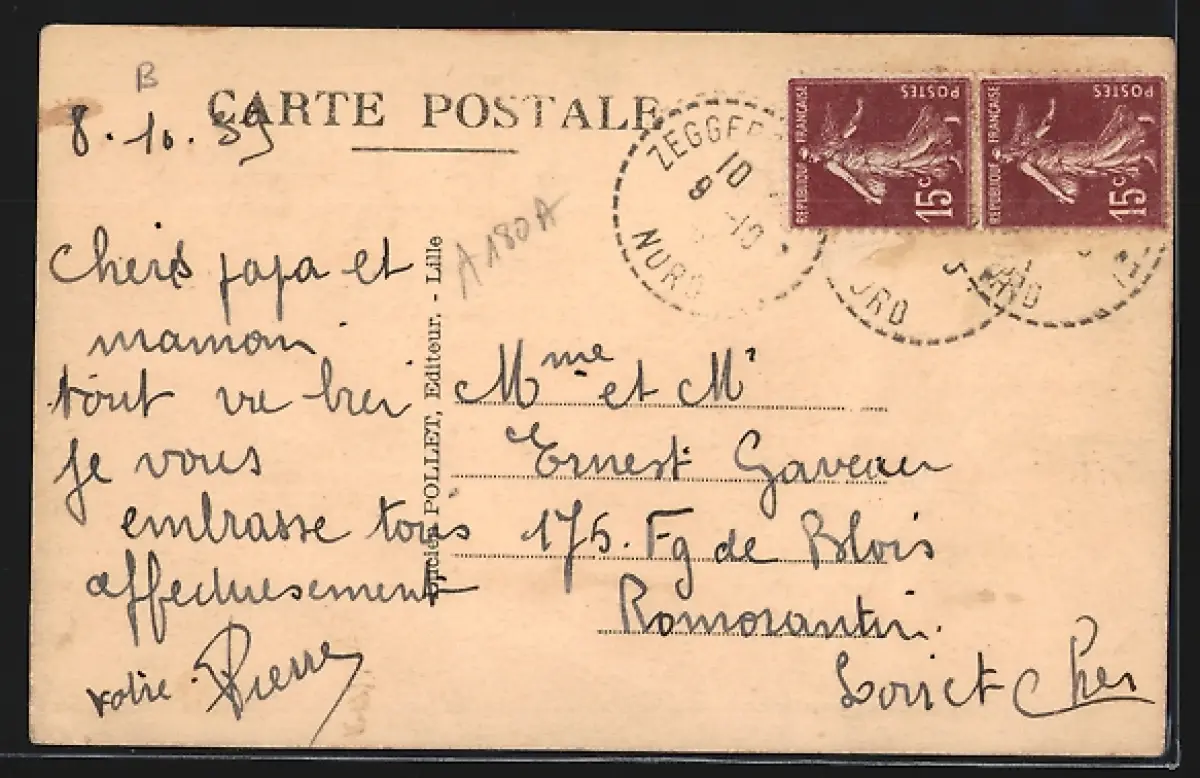 B
CARTE POSTALE
8.10.39
Chers papa et
maman
tout va bien
je vous
embrasse tous
affectueusement
votre Pierre
A180A
Lucien POLLET, Editeur. - Lille
ZEGGER
10
9 -10
NORD
RÉPUBLIQUE FRANÇAISE
POSTES
15c
RÉPUBLIQUE FRANÇAISE
POSTES
15c
ORD
Mme et Mr
Ernest Gaveau
175. Fg de Blois
Romorantin.
Loir et Cher